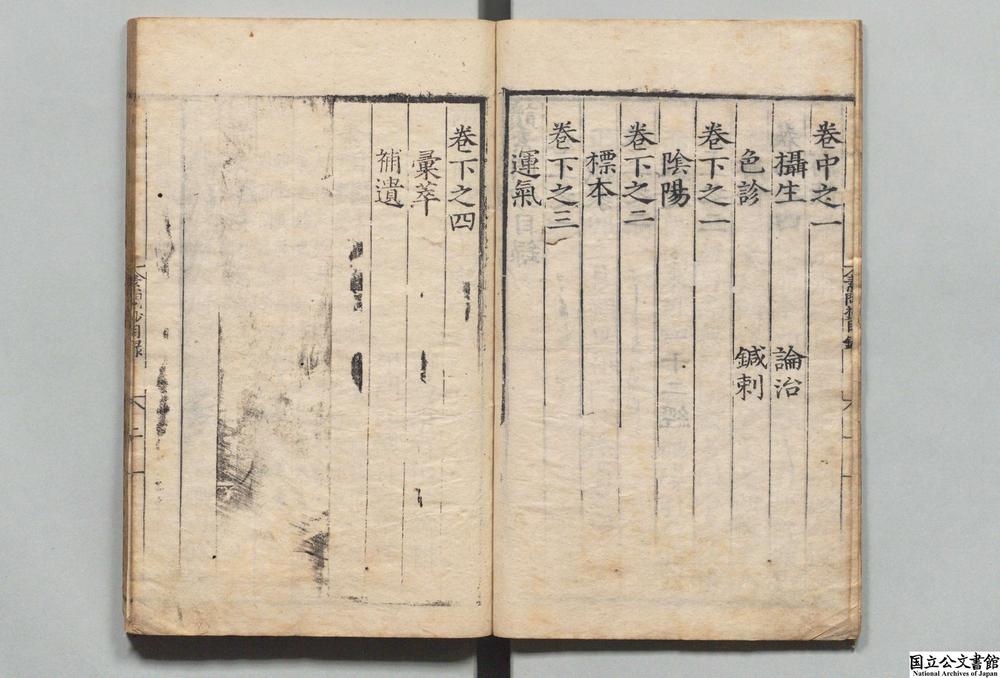 卷中之一
攝生 論治
色診 鍼刺
卷下之二
陰陽
卷下之二
標本
卷下之三
運氣
卷下之四
彙萃
補遺
国立公文書館
National Archives of Japan